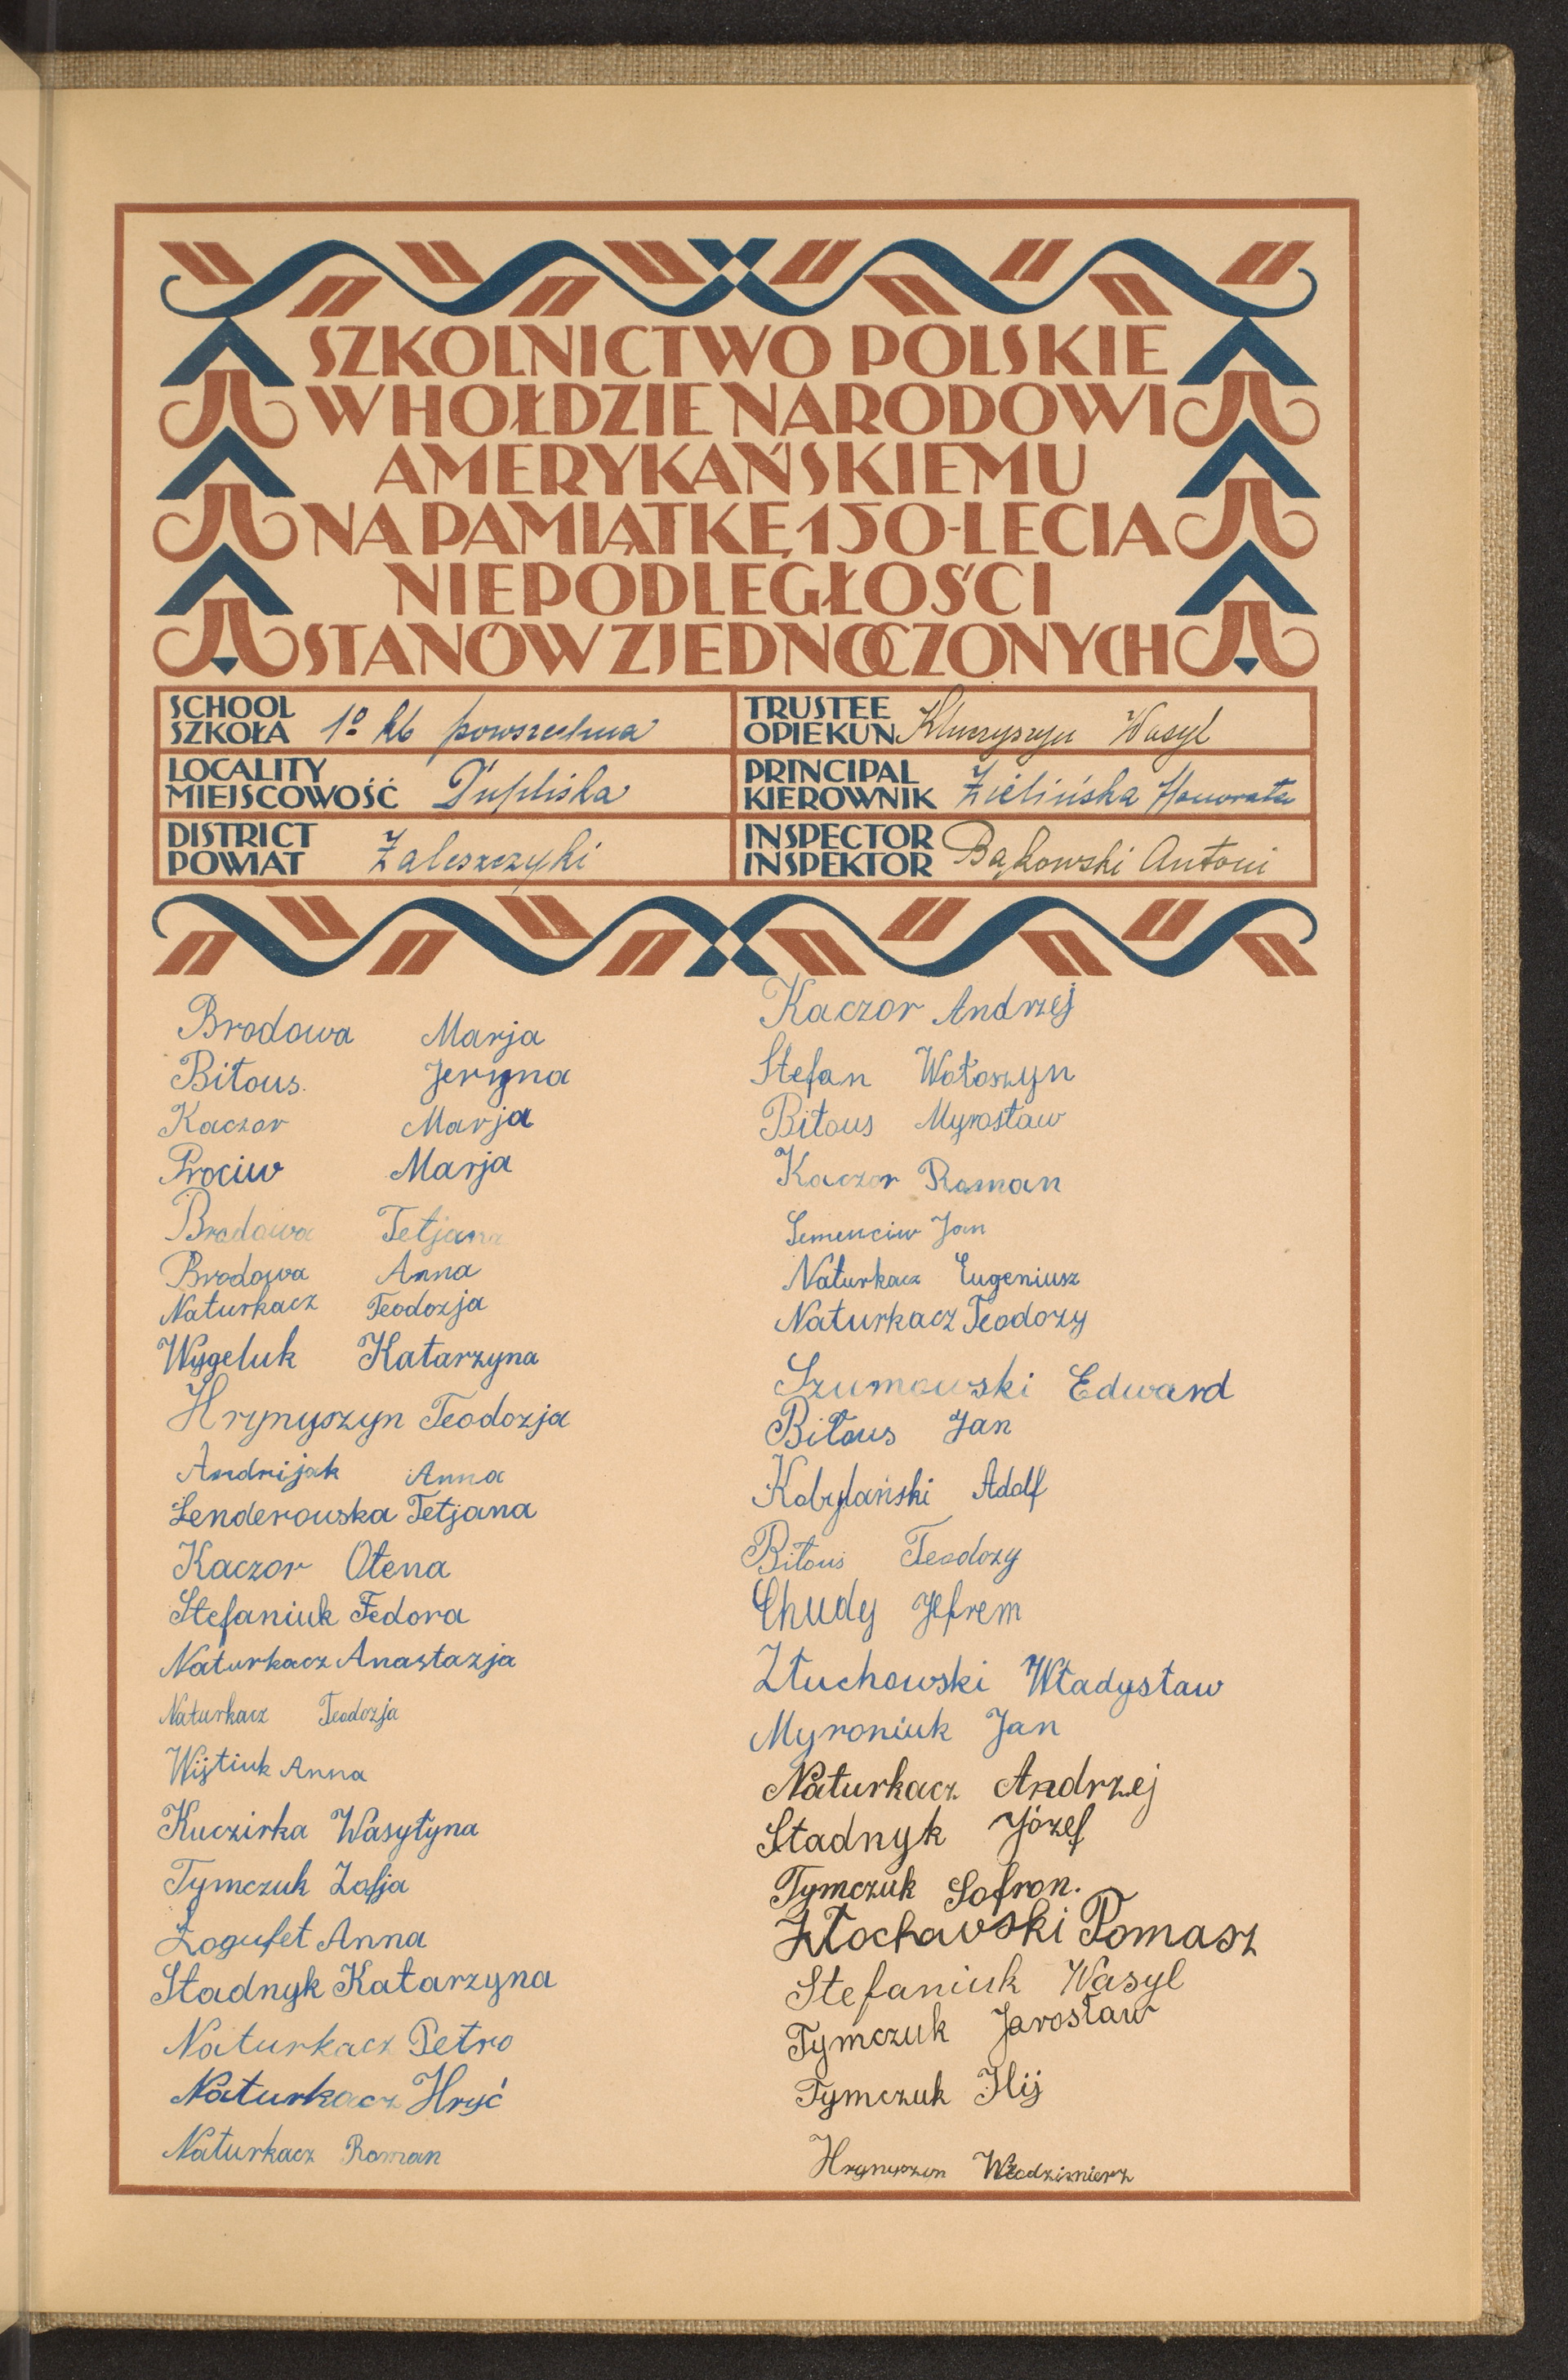 SZKOLNICTWO POLSKIE
W HOŁDZIE NARODOWI
AMERYKAŃSKIEMU
NA PAMIĄTKĘ 150-LECIA
NIEPODLEGŁOŚCI
STANÓW ZJEDNOCZONYCH
SCHOOL
SZKOŁA 1º kl powszechna
TRUSTEE
OPIEKUN Wasyl
LOCALITY
MIEJSCOWOŚĆ Dupliska
PRINCIPAL
KIEROWNIK Zielińska Honorata
DISTRICT
POWIAT Zaleszczyki
INSPECTOR
INSPEKTOR Bąkowski Antoni
Brodowa Marja
Biłous. Jeryna
Kaczor Marja
Prociw Marja
Brodowa Tetjana
Brodowa Anna
Naturkacz Teodozja
Wygeluk Katarzyna
Hrynyszyn Teodozja
Andrijak Anna
Lenderouska Tetjana
Kaczor Ołena
Stefaniuk Fedora
Naturkacz Anastazja
Naturkacz Teodozja
Wijtiuk Anna
Kuczirka Wasyłyna
Tymczuk Zofja
Zogufet Anna
Stadnyk Katarzyna
Naturkacz Petro
Naturkacz Hryć
Naturkacz Roman
Kaczor Andrzej
Stefan Wołoszyn
Biłous Myrosław
Kaczor Roman
Semenciw Jan
Naturkacz Eugeniusz
Naturkacz Teodozy
Szumowski Edward
Biłous Jan
Kobylański Adolf
Biłous Teodozy
Chudy Jefrem
Złuchowski Władysław
Myroniuk Jan
Naturkacz Andrzej
Stadnyk Józef
Tymczuk Sofron.
Złochowski Tomasz
Stefaniuk Wasyl
Tymczuk Jarosław
Tymczuk Ilij
Hrynyszyn Włodzimierz